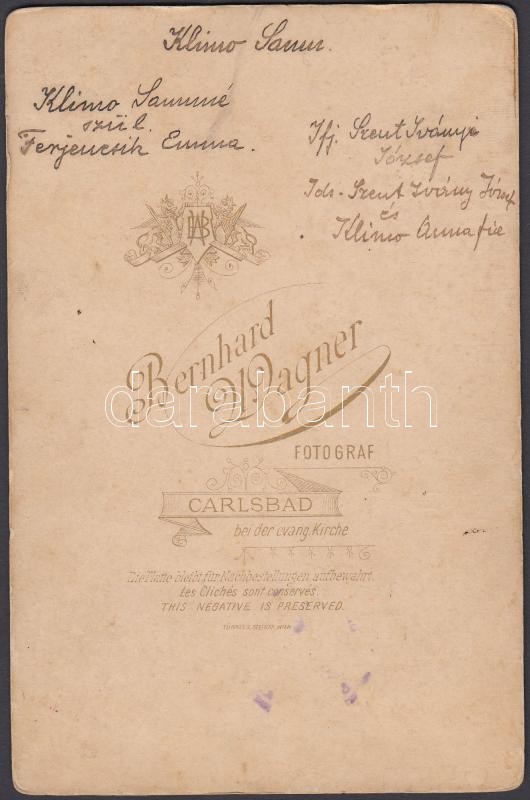 Klimo Samu.
Klimo Samuné
szül.
Ferjencsik Emma.
Ifj. Szent Iványi
József
Ids. Szent Iványi József
és
Klimo Anna fia
BW
Bernhard
Wagner
darabanth
FOTOGRAF
CARLSBAD
bei der evang. Kirche
Die Platte bleibt für Nachbestellungen aufbewahrt.
Les Clichés sont conservés.
THIS NEGATIVE IS PRESERVED.